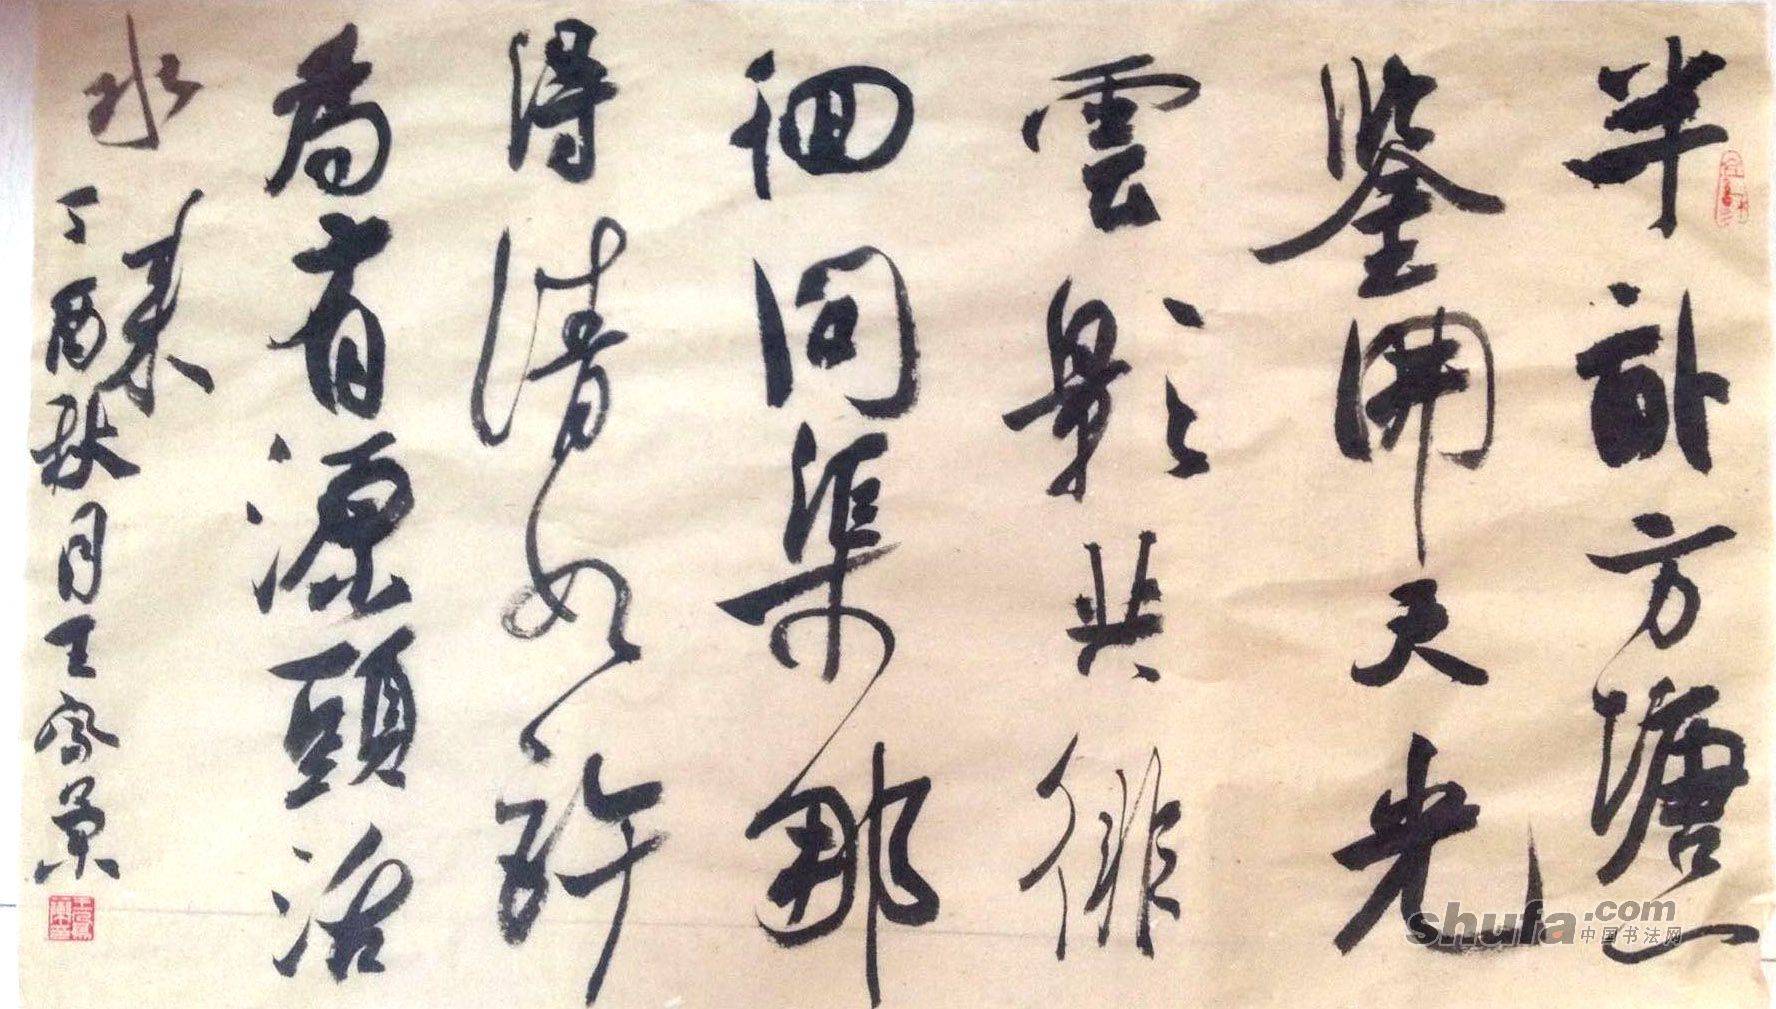 半畝方塘一
鑒開天光
雲影共徘
徊問渠那
得清如許
為有源頭活
水来
丁酉秋月王
shufa.com
中国书法网